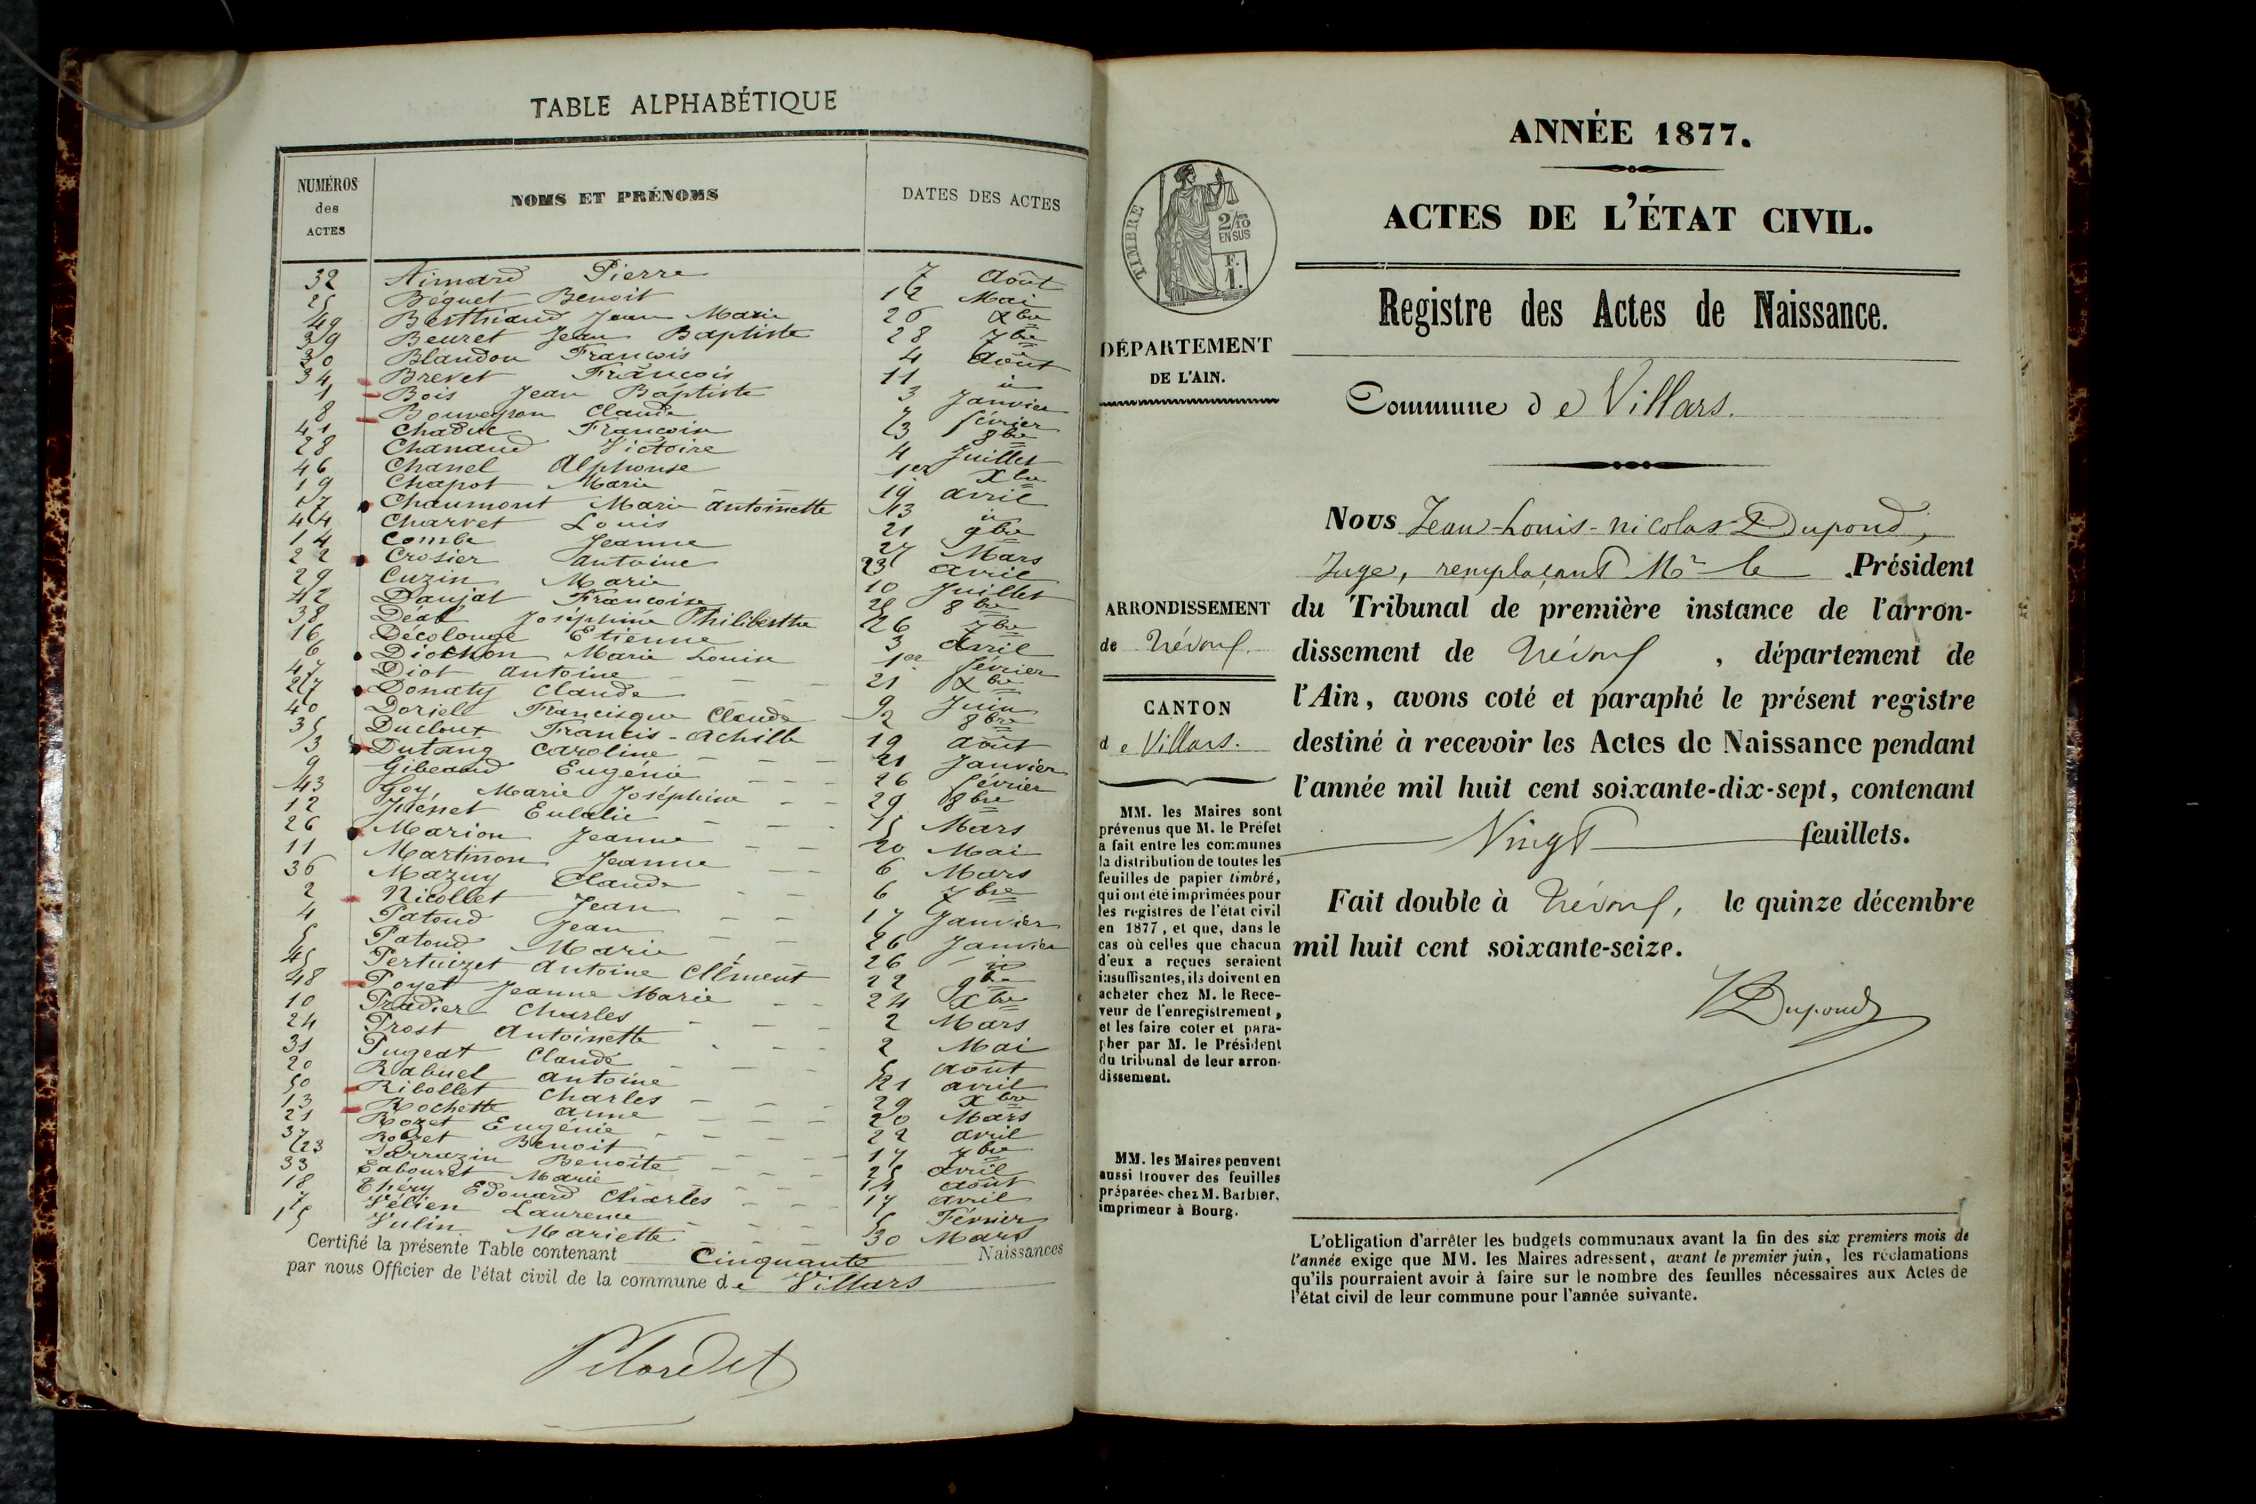 TABLE ALPHABÉTIQUE
NUMÉROS des ACTES NOMS ET PRÉNOMS DATES DES ACTES
32 Aimard Pierre 7 Août
25 Béguet Benoit 12 Mai
49 Berthiaud Jean Marie 26 Xbre
39 Beuret Jean Baptiste 28 7bre
30 Blandon François 4 Août
34 Brevet François 11 id
1 Bois Jean Baptiste 3 Janvier
8 Bouvegron Claude 7 février
41 Chaduc François 23 8bre
28 Chanaud Victoire 4 Juillet
46 Chanel Alphonse 1er Xbre
19 Chapot Marie 19 avril
17 Chaumont Marie antoinette 13 id
44 Charvet Louis 21 9bre
14 Combe Jeanne 27 Mars
22 Crosier antoine 23 avril
29 Cuzin Marie 10 Juillet
42 Daujat Françoise 28 8bre
38 Déat Joséphine Philiberthe 26 7bre
16 Décolonge Etienne 3 Avril
6 Diochon Marie Louise 1er février
47 Diot antoine 21 Xbre
27 Donaty Claude 9 Juin
40 Doriel Francisque Claude 2 8bre
35 Ducloux Francis-Achille 19 août
3 Dutang Caroline 21 Janvier
9 Gibeaud Eugénie 26 février
43 Goy Marie Joséphine 29 8bre
12 Juénet Eulalie 15 Mars
26 Marion Jeanne 20 Mai
11 Martinon Jeanne 6 Mars
36 Mazuy Claude 6 7bre
2 Nicollet Jean 17 Janvier
4 Patoud Jean 26 Janvier
5 Patoud Marie 26 id
45 Pertuizet Antoine Clément 22 9bre
48 Poyet Jeanne Marie 24 Xbre
10 Pradier Charles 2 Mars
24 Prost Antoinette 2 Mai
31 Pugeat Claude 5 août
20 Rabuel antoine 21 avril
50 Ribollet Charles 29 Xbre
13 Rochette anne 20 Mars
21 Rozet Eugénie 22 avril
37 Rozet Benoit 17 7bre
23 Sarrazin Benoîte 25 avril
33 Tabouret Marie 14 août
18 Théry Edouard Charles 17 avril
7 Vélien Laurence 5 Février
15 Vulin Mariette 30 Mars
Certifié la présente Table contenant Cinquante Naissances
par nous Officier de l'état civil de la commune de Villars
ANNÉE 1877.
ACTES DE L'ÉTAT CIVIL.
Registre des Actes de Naissance.
Commune de Villars.
TIMBRE
2/10
EN SUS
F.
1.
DÉPARTEMENT
DE L'AIN.
ARRONDISSEMENT
de Trévoux.
CANTON
de Villars.
MM. les Maires sont
prévenus que M. le Préfet
a fait entre les communes
la distribution de toutes les
feuilles de papier timbré,
qui ont été imprimées pour
les registres de l'état civil
en 1877, et que, dans le
cas où celles que chacun
d'eux a reçues seraient
insuffisantes, ils doivent en
acheter chez M. le Rece-
veur de l'enregistrement,
et les faire coter et para-
pher par M. le Président
du tribunal de leur arron-
dissement.
MM. les Maires peuvent
aussi trouver des feuilles
préparées chez M. Barbier,
imprimeur à Bourg.
Nous Jean-Louis-Nicolas Dupond,
Juge, remplaçant Mr le Président
du Tribunal de première instance de l'arron-
dissement de Trévoux, département de
l'Ain, avons coté et paraphé le présent registre
destiné à recevoir les Actes de Naissance pendant
l'année mil huit cent soixante-dix-sept, contenant
Vingt feuillets.
Fait double à Trévoux, le quinze décembre
mil huit cent soixante-seize.
Dupond
L'obligation d'arrêter les budgets communaux avant la fin des six premiers mois de
l'année exige que MM. les Maires adressent, avant le premier juin, les réclamations
qu'ils pourraient avoir à faire sur le nombre des feuilles nécessaires aux Actes de
l'état civil de leur commune pour l'année suivante.